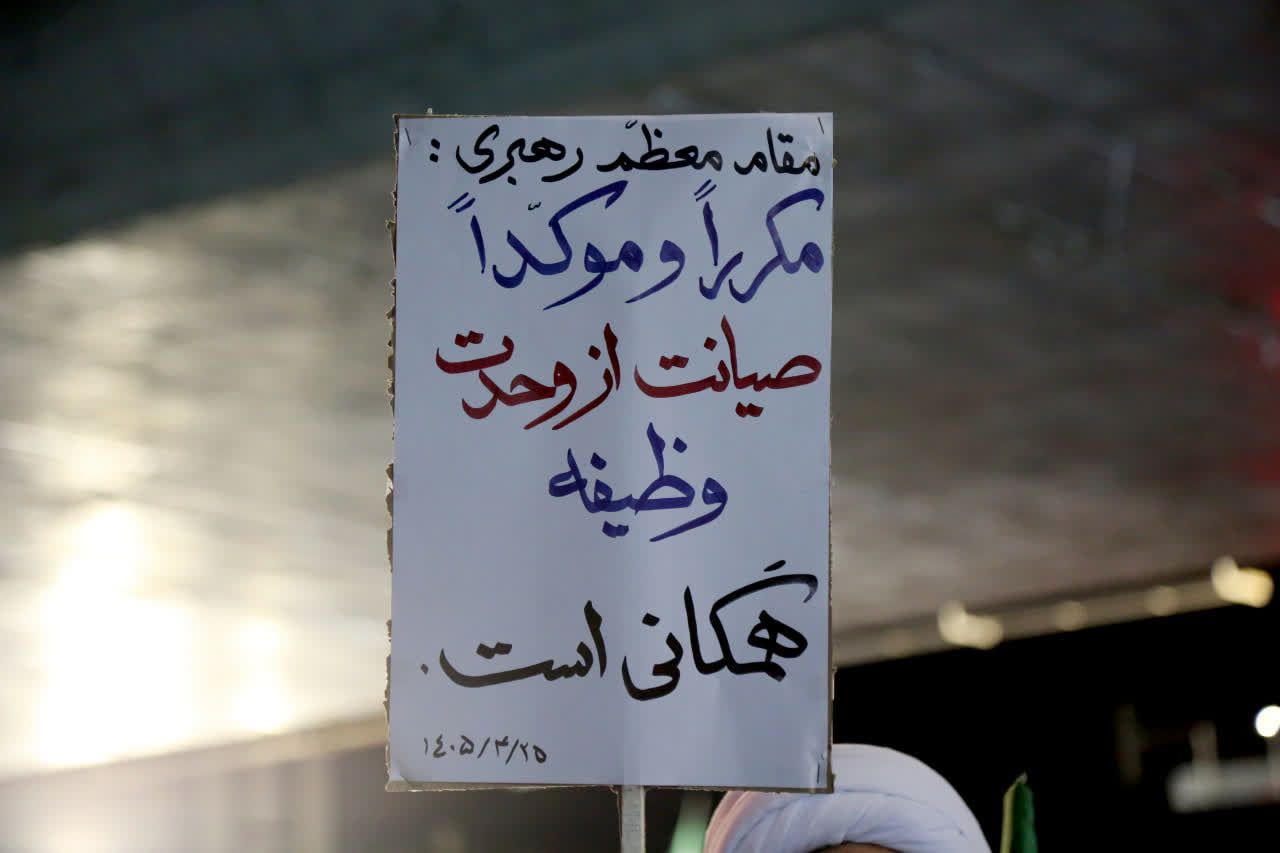 مقام معظّم رهبری :
مکرراً و موکّداً
صیانت از وحدت
وظیفه
همگانی است.
۱۴۰۵/۴/۲۵